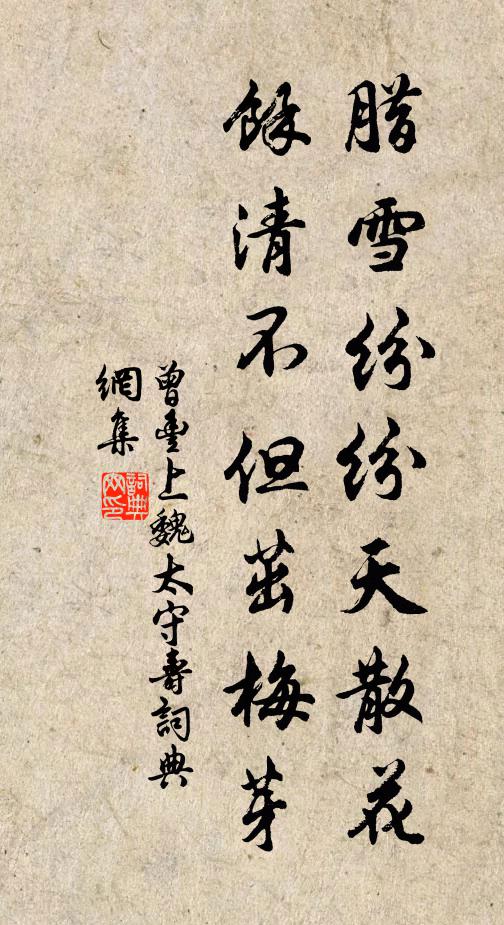 腊雪纷纷天散花
馀清不但茁梅芽
曾豊上魏太守壽詞典
網集
詞典
网印